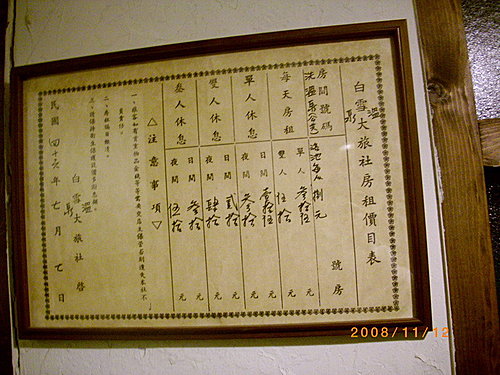 白雪大旅社房租價目表
溫泉
房間號碼 號房
洗溫泉(公共)浴池每人捌元
每天房租 單人 叁拾伍 元
雙人 伍拾 元
單人休息 日間 壹拾伍 元
夜間 叁拾 元
雙人休息 日間 貳拾 元
夜間 肆拾 元
叁人休息 日間 叁拾 元
夜間 伍拾 元
△注意事項▽
一、旅客如有貴重物品金錢等
負責任。
二、房租每日徵清。
白雪大旅社 啓
溫泉
民國四十六年七月七日
2008/11/12